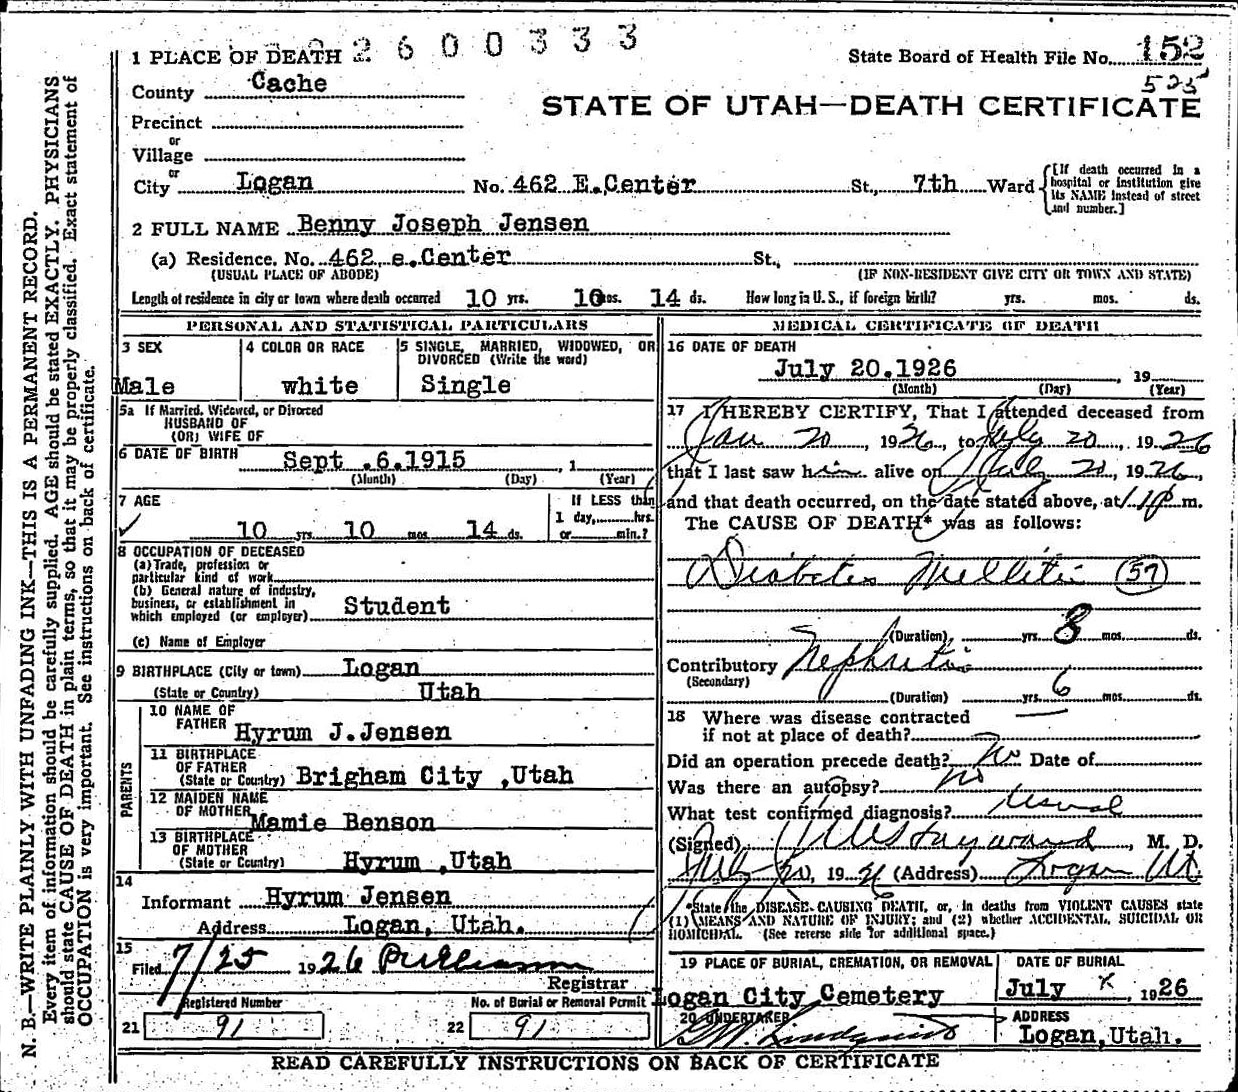 2600333
1 PLACE OF DEATH
State Board of Health File No. 152
525
County Cache
STATE OF UTAH—DEATH CERTIFICATE
Precinct
or
Village
or
City Logan No. 462 E.Center St., 7th Ward
[If death occurred in a hospital or institution give its NAME instead of street and number.]
2 FULL NAME Benny Joseph Jensen
(a) Residence. No. 462 e.Center St.,
(USUAL PLACE OF ABODE) (IF NON-RESIDENT GIVE CITY OR TOWN AND STATE)
Length of residence in city or town where death occurred 10 yrs. 10 mos. 14 ds. How long in U. S., if foreign birth? yrs. mos. ds.
PERSONAL AND STATISTICAL PARTICULARS
3 SEX
Male
4 COLOR OR RACE
white
5 SINGLE, MARRIED, WIDOWED, OR
DIVORCED (Write the word)
Single
5a If Married, Widowed, or Divorced
HUSBAND OF
(OR) WIFE OF
6 DATE OF BIRTH Sept .6.1915 , 1
(Month) (Day) (Year)
7 AGE
10 yrs. 10 mos. 14 ds.
If LESS than
1 day, hrs.
or min.?
8 OCCUPATION OF DECEASED
(a) Trade, profession or
particular kind of work
(b) General nature of industry,
business, or establishment in
which employed (or employer) Student
(c) Name of Employer
9 BIRTHPLACE (City or town) Logan
(State or Country) Utah
PARENTS
10 NAME OF
FATHER Hyrum J.Jensen
11 BIRTHPLACE
OF FATHER
(State or Country) Brigham City ,Utah
12 MAIDEN NAME
OF MOTHER Mamie Benson
13 BIRTHPLACE
OF MOTHER
(State or Country) Hyrum ,Utah
14
Informant Hyrum Jensen
Address Logan, Utah.
15
Filed 7/25 1926
Registrar
Registered Number
21 91
No. of Burial or Removal Permit
22 91
MEDICAL CERTIFICATE OF DEATH
16 DATE OF DEATH
July 20.1926 , 19
(Month) (Day) (Year)
17 I HEREBY CERTIFY, That I attended deceased from
Jan 20, 1926, to July 20, 1926
that I last saw him alive on July 20, 1926,
and that death occurred, on the date stated above, at 1 P m.
The CAUSE OF DEATH* was as follows:
Diabetes Mellitis (57)
(Duration) yrs. 8 mos. ds.
Contributory Nephritis
(Secondary)
(Duration) yrs. 6 mos. ds.
18 Where was disease contracted
if not at place of death?
Did an operation precede death? No Date of
Was there an autopsy? no
What test confirmed diagnosis? Usual
(Signed) Hayward, M. D.
July 20, 1926 (Address) Logan Ut.
*State the DISEASE CAUSING DEATH, or, in deaths from VIOLENT CAUSES state
(1) MEANS AND NATURE OF INJURY; and (2) whether ACCIDENTAL, SUICIDAL OR
HOMICIDAL. (See reverse side for additional space.)
19 PLACE OF BURIAL, CREMATION, OR REMOVAL
Logan City Cemetery
DATE OF BURIAL
July , 1926
20 UNDERTAKER
Lindquist
ADDRESS
Logan,Utah.
READ CAREFULLY INSTRUCTIONS ON BACK OF CERTIFICATE
N. B.—WRITE PLAINLY WITH UNFADING INK—THIS IS A PERMANENT RECORD.
Every item of information should be carefully supplied. AGE should be stated EXACTLY. PHYSICIANS
should state CAUSE OF DEATH in plain terms, so that it may be properly classified. Exact statement of
OCCUPATION is very important. See instructions on back of certificate.